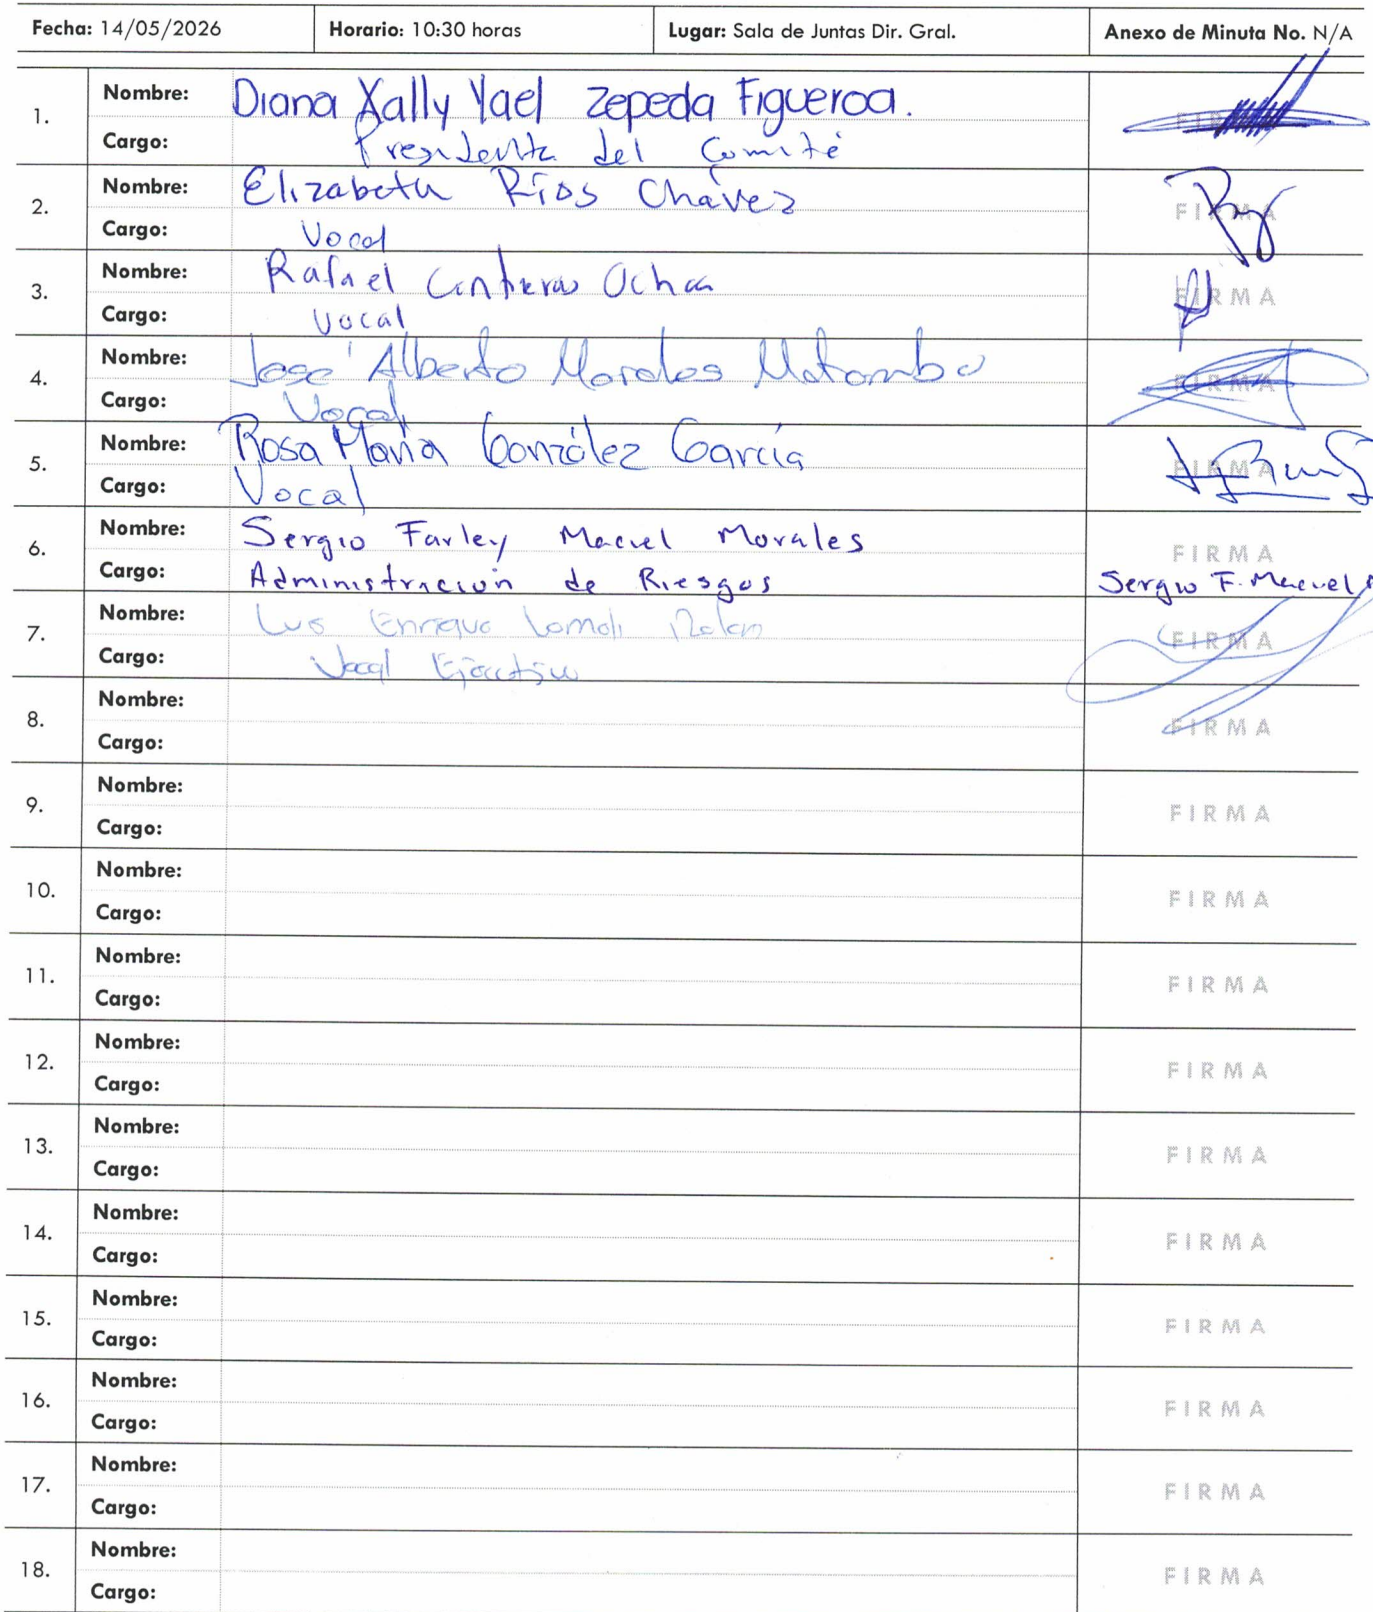 Fecha: 14/05/2026 Horario: 10:30 horas Lugar: Sala de Juntas Dir. Gral. Anexo de Minuta No. N/A
1. Nombre: Diana Xally Yael Zepeda Figueroa.
Cargo: Presidenta del Comité
2. Nombre: Elizabeth Ríos Chávez
FIRMA
Cargo: Vocal
3. Nombre: Rafael Contreras Ochoa
FIRMA
Cargo: Vocal
4. Nombre: José Alberto Morales
FIRMA
Cargo: Vocal
5. Nombre: Rosa María González García
FIRMA
Cargo: Vocal
6. Nombre: Sergio Farley Maciel Morales
FIRMA
Cargo: Administración de Riesgos Sergio F. Maciel
7. Nombre: Luis Enrique
FIRMA
Cargo: Vocal Ejecutivo
8. Nombre:
FIRMA
Cargo:
9. Nombre:
FIRMA
Cargo:
10. Nombre:
FIRMA
Cargo:
11. Nombre:
FIRMA
Cargo:
12. Nombre:
FIRMA
Cargo:
13. Nombre:
FIRMA
Cargo:
14. Nombre:
FIRMA
Cargo:
15. Nombre:
FIRMA
Cargo:
16. Nombre:
FIRMA
Cargo:
17. Nombre:
FIRMA
Cargo:
18. Nombre:
FIRMA
Cargo: